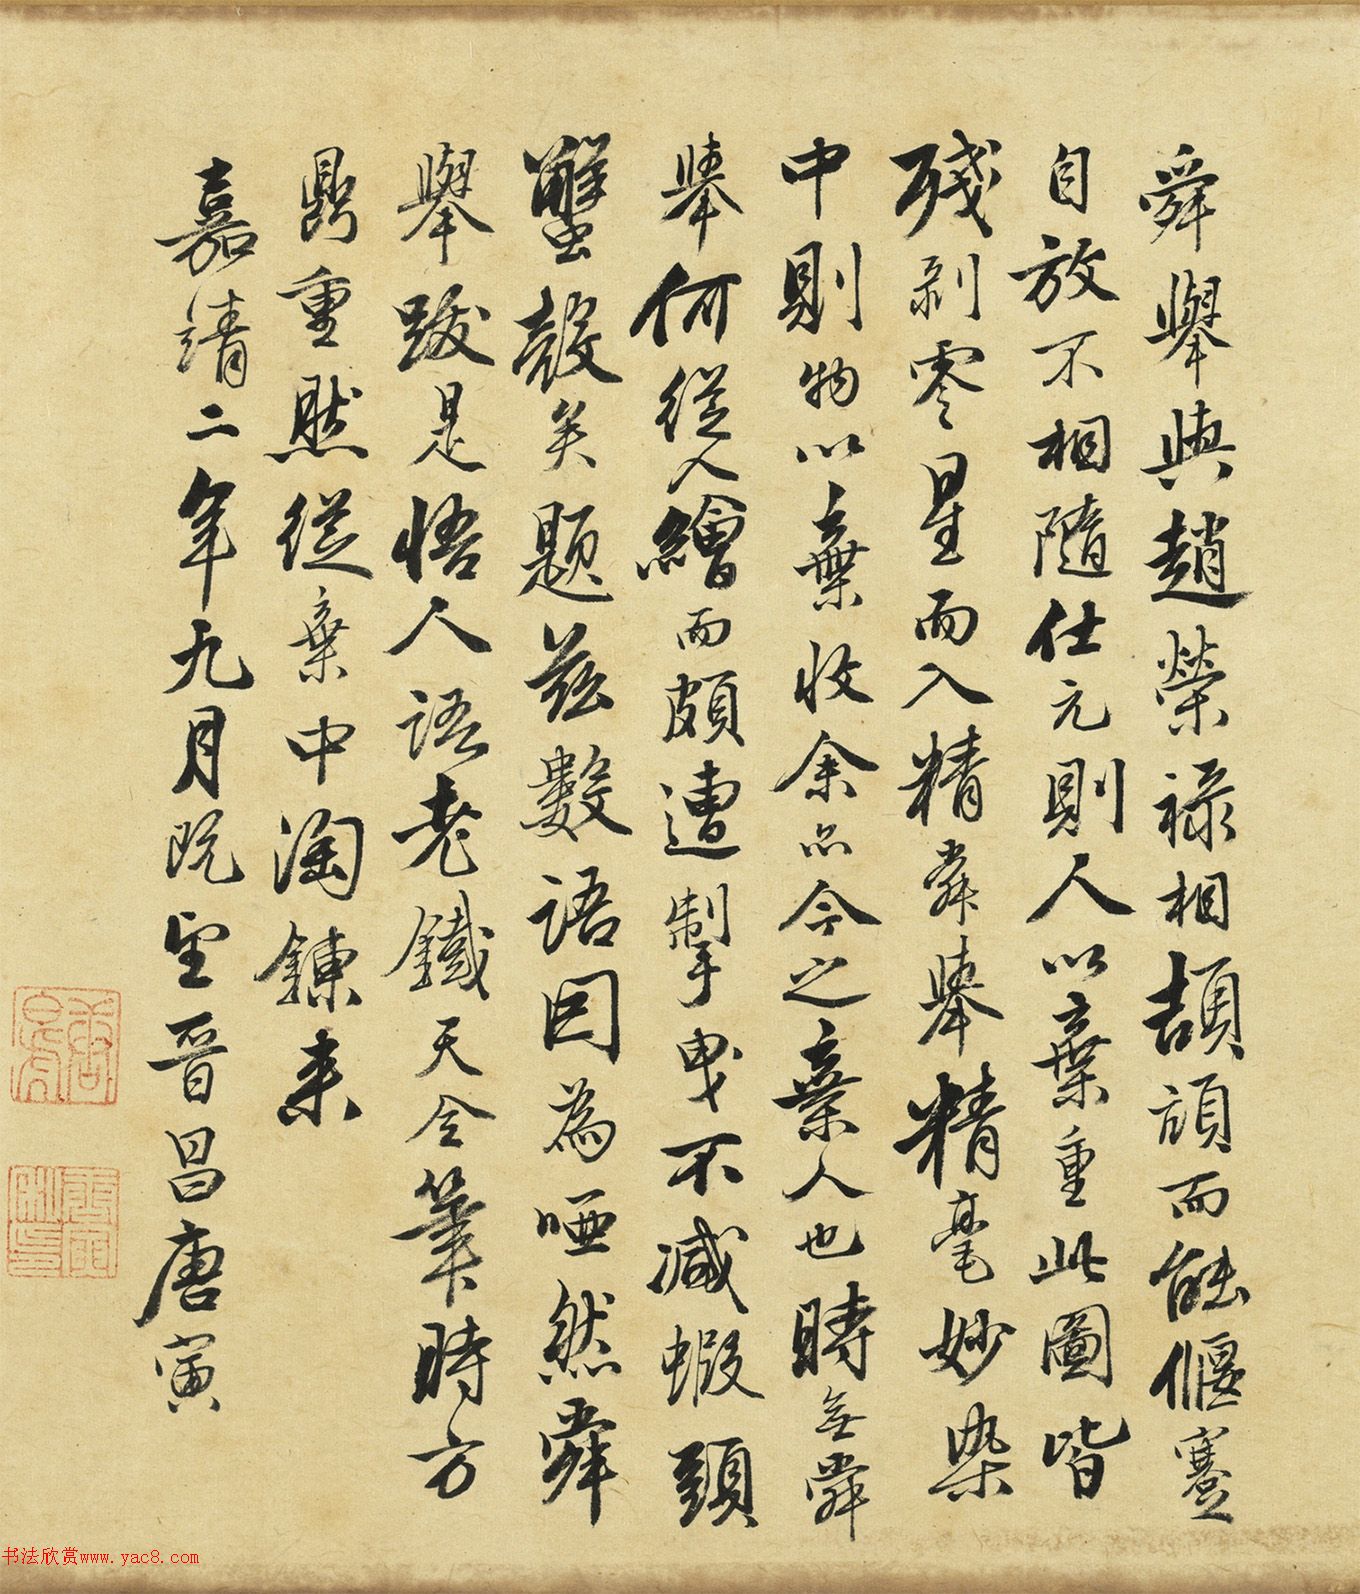 舜舉與趙榮祿相頡頏而能偃蹇
自放不相隨仕元則人以棄重此圖皆
殘剝零星而入精舜舉精毫妙染
中則物以棄收余亦今之棄人也時無舜
舉何從人繪而頗遭掣曳不減蝦頭
蟹殼矣題茲數語因為啞然舜
舉跋是悟人語老鐵天全筆時方
鼎重然從棄中淘鍊來
嘉靖二年九月既望晉昌唐寅
书法欣赏www.yac8.com